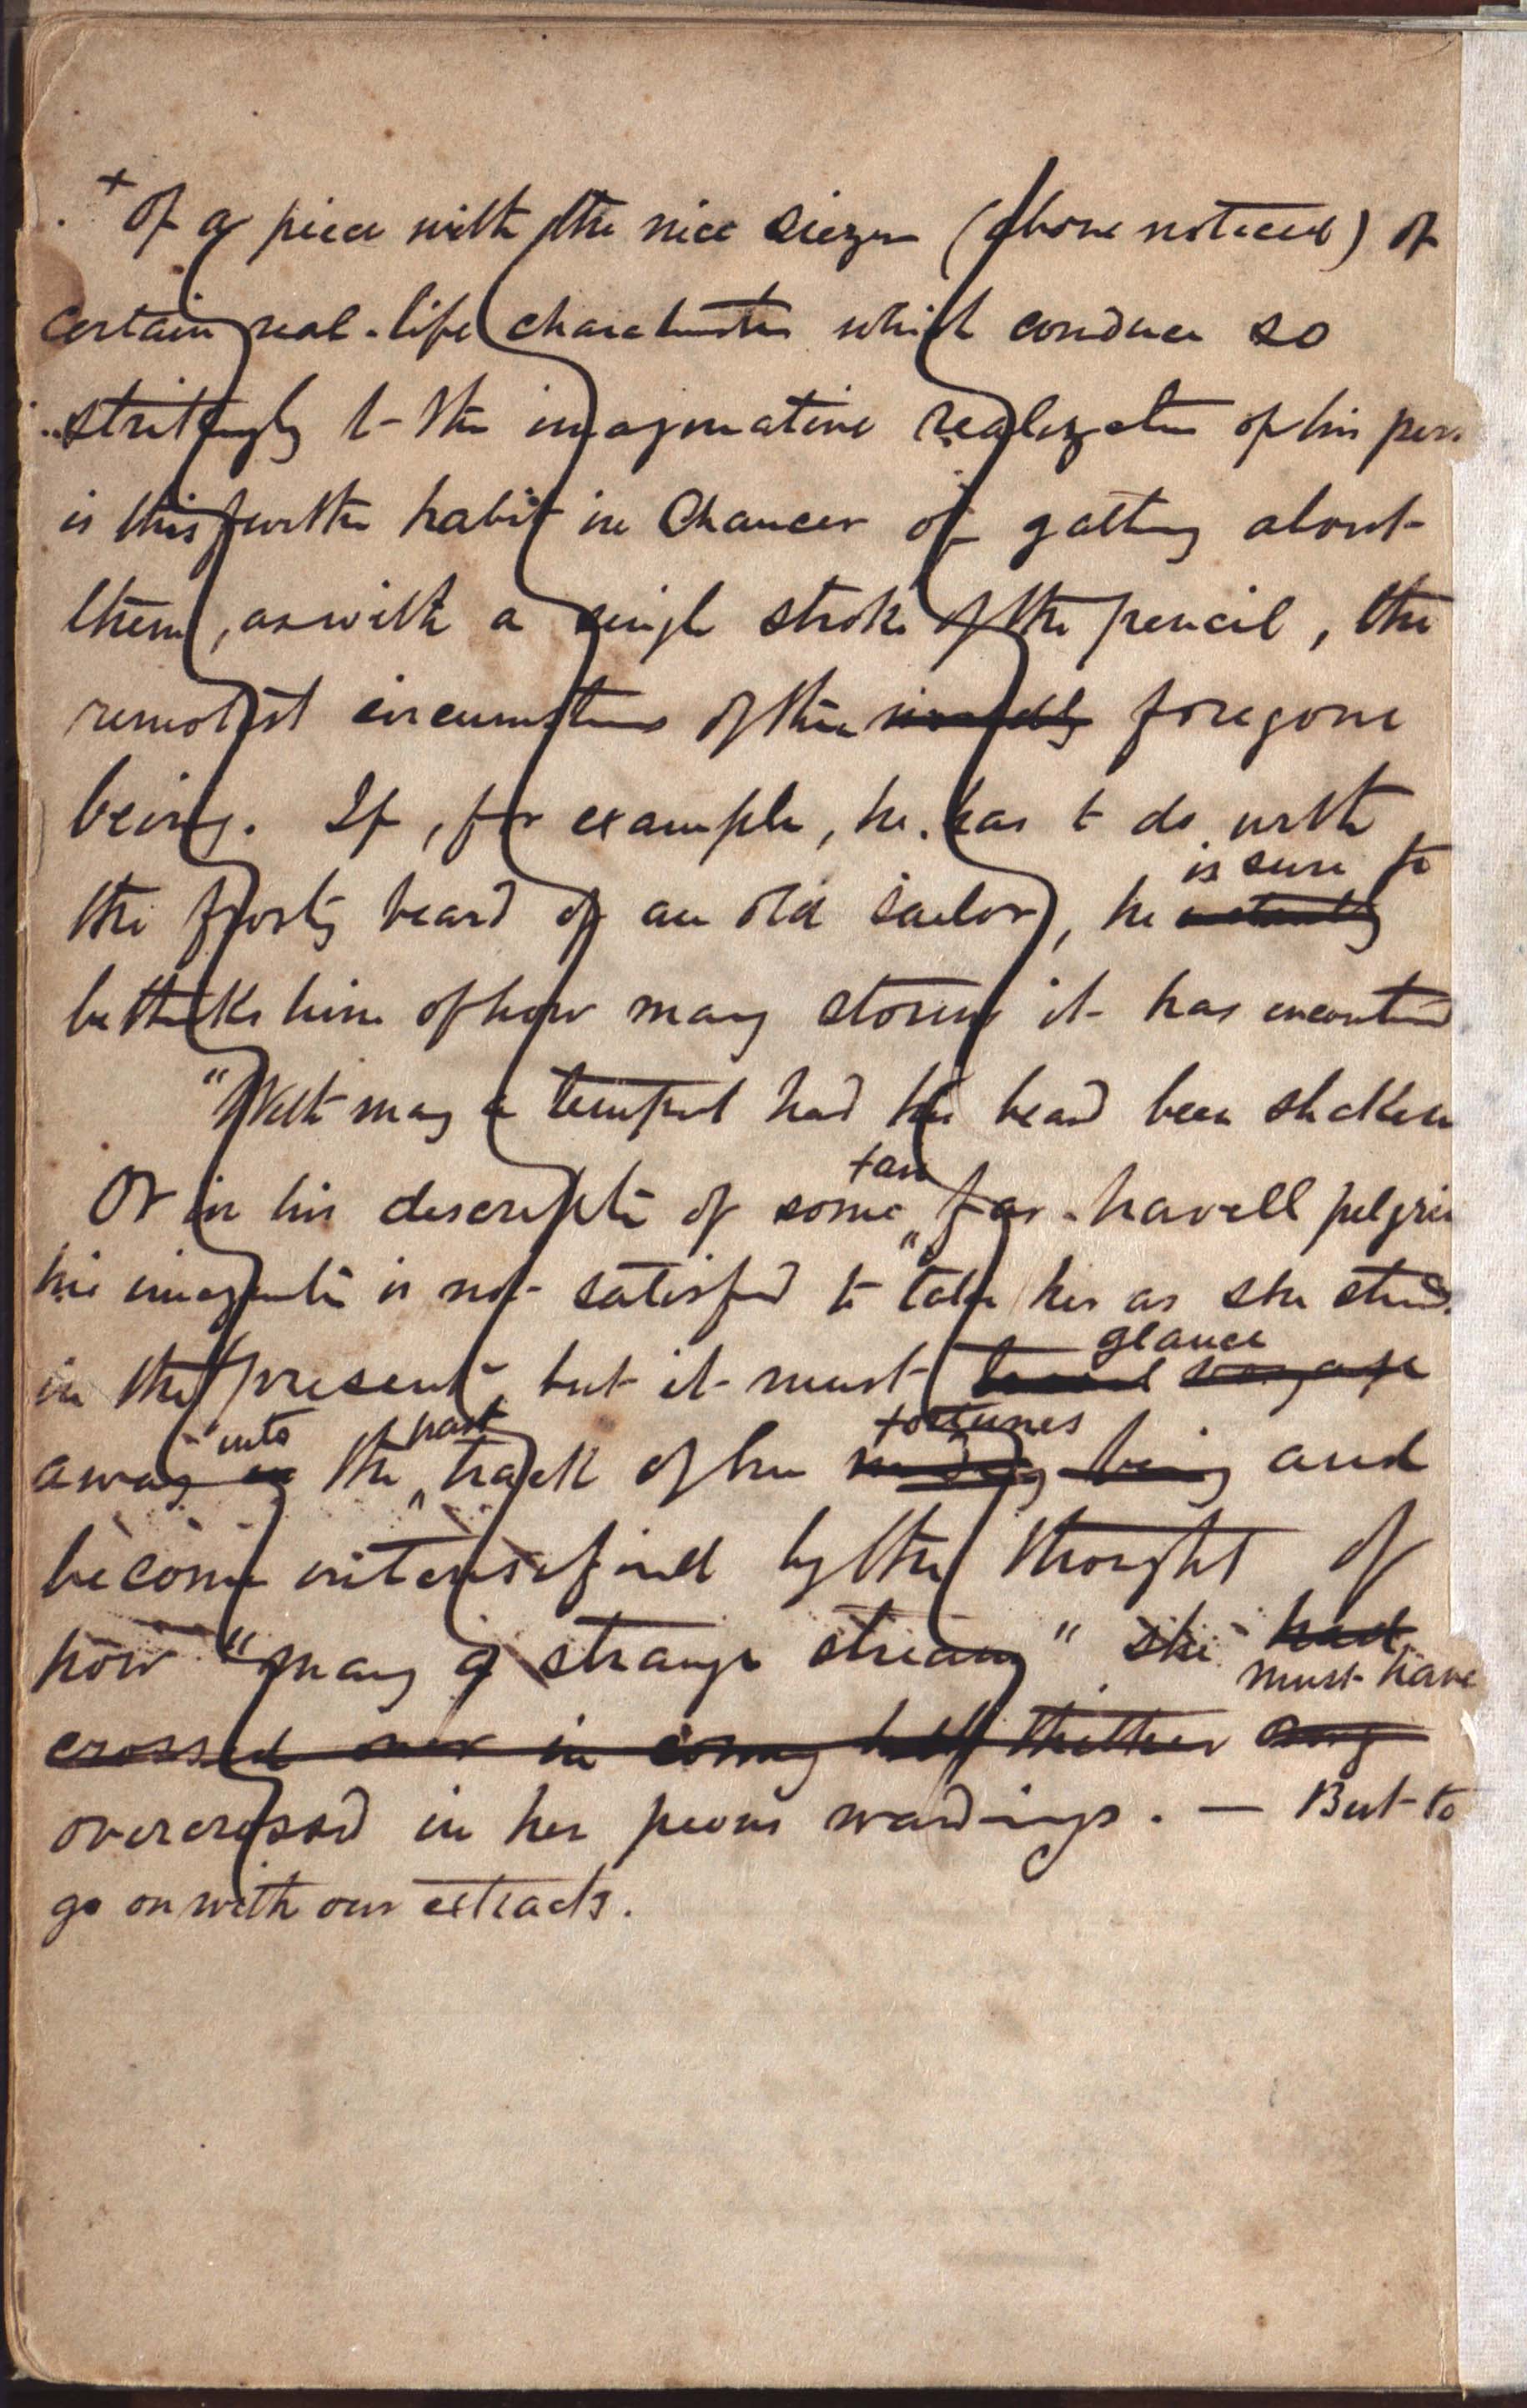 + Of a piece with the nice siezure (above noticed) of
certain real-life characteristics which conduce so
strikingly to the imaginative realization of his pers
is this further habit in Chaucer of gatting about
them, as with a single stroke of the pencil, the
remotest circumstances of their foregone
being. If, for example, he has to do with
is sure to
the frosty beard of an old sailor, he
bethinks him of how many storms it has encountered
"With many a tempest had his beard been shaken
tan
Or in his description of some far-travelld pilgrim
his imagination is not satisfied to take her as she stands
glance
in the present, but it must travel
into past fortunes
away in the track of her being and
become intensified by the thought of
how "many a strange stream" she had
must have
crossed over in coming thither
overcrossd in her pious wandrings. — But to
go on with our extracts.